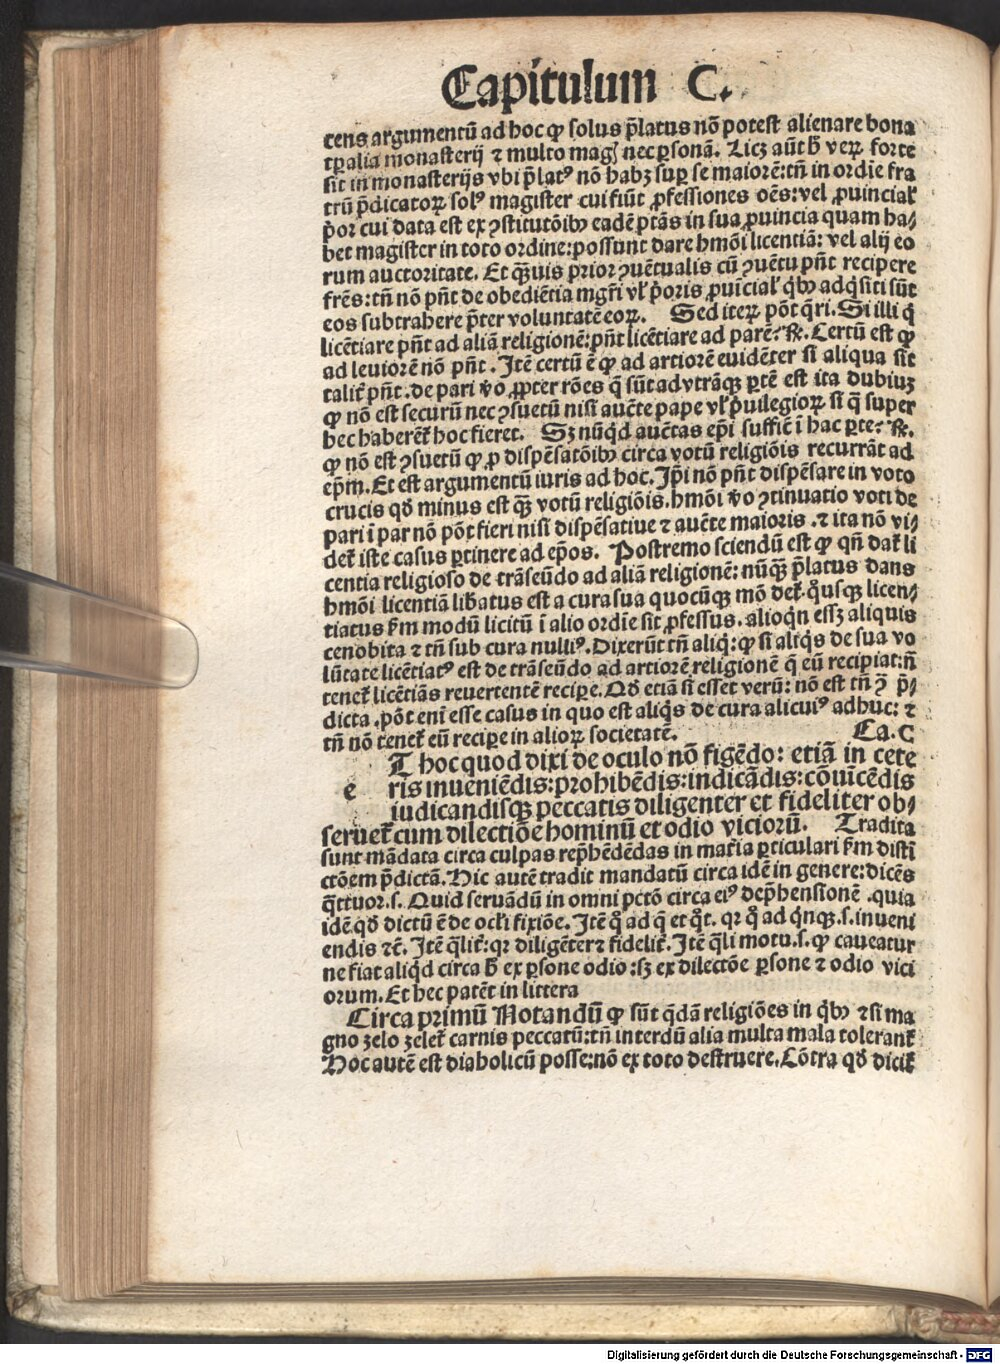 Capitulum C.
tens argumentū ad hoc ꝙ solus p̄latus nō potest alienare bona
tꝑalia monasterij ⁊ multo magꝭ nec ꝑsonā. Licꝫ aūt h̄ veꝝ forte
sit in monasterijs vbi p̄latꝰ nō habꝫ suꝑ se maiorē: tn̄ in ordīe fra
trū p̄dicatoꝝ solꝰ magister cui fiūt ꝓfessiones oēs: vel ꝓuincialꝭ
p̓or cui data est ex ꝯstitutōibꝰ eadē ptās in sua ꝓuincia quam ha/
bet magister in toto ordine: possunt dare hmōi licentiā: vel alij eo
rum auctoritate. Et qꝫuis prior ꝯuētualis cū ꝯuētu pn̄t recipere
frēs: tn̄ nō pn̄t de obediētia mgr̄i vl̓ p̓oris ꝓuīcial̓ q̓bꝰ adq̓siti sūt
eos subtrahere p̄ter voluntatē eoꝝ. Sed iteꝝ pōt q̄ri. Si illi q̓
licētiare pn̄t ad aliā religionē: pn̄t licētiare ad parē? ℞. Certū est ꝙ
ad leuiorē nō pn̄t. Itē certū ē ꝙ ad artiorē euidēter si aliqua sit
talit̓ pn̄t. de pari v̓o ꝓpter rōes q̄ sūt ad vtrāqꝫ ꝑtē est ita dubiuꝫ
ꝙ nō est securū nec ꝯsuetū nisi auc̄te pape vl̓ p̓uilegioꝝ si q̄ super
hec haberēt̓ hoc fieret. Sꝫ nūq̓d auc̄tas ep̄i suffic̄ ī hac ꝑte? ℞.
ꝙ nō est ꝯsuetū ꝙ ꝓ dispēsatōibꝰ circa votū religiōis recurrāt ad
ep̄m. Et est argumentū iuris ad hoc. Ip̄i nō pn̄t dispēsare in voto
crucis qd̓ minus est qꝫ votū religiōis. hmōi v̓o ꝯtinuatio voti de
pari ī par nō pōt fieri nisi dispēsatiue ⁊ auc̄te maioris. ⁊ ita nō vi/
det̓ iste casus ꝑtinere ad ep̄os. Postremo sciendū est ꝙ qn̄ dat̓ li
centia religioso de trāseūdo ad aliā religionē: nūqꝫ p̄latus dans
hmōi licentiā libatus est a cura sua quocūqꝫ mō det̓. q̊usqꝫ licen/
tiatus fm modū licitū ī alio ordīe sit ꝓfessus. alioq̓n essꝫ aliquis
cenobita ⁊ tn̄ sub cura nulliꝰ. Dixerūt tn̄ aliq̓: ꝙ si aliq̓s de sua vo
lūtate licētiatꝰ est de trāseūdo ad artiorē religionē q̄ eū recipiat: n̄
tenet̓ licētiās reuertentē reciꝑe. Qd̓ etiā si esset verū: nō est tn̄ ꝯ p̄/
dicta. pōt enī esse casus in quo est aliq̓s de cura alicuiꝰ adhuc: ⁊
tn̄ nō tenet̓ eū reciꝑe in alioꝝ societatē. Ca. C
T hoc quod dixi de oculo nō figēdo: etiā in cete
e ris inueniēdis: prohibēdis: indicādis: cōuīcēdis
iudicandisqꝫ peccatis diligenter et fideliter ob/
seruet̓ cum dilectiōe hominū et odio viciorū. Tradita
sunt mādata circa culpas rep̄hēdēdas in mat̓ia ꝑticulari fm disti
ctōem p̄dictā. Hic autē tradit mandatū circa idē in genere: dicēs
q̄ttuor. s. Quid seruādū in omni pctō circa eiꝰ dep̄hensionē. quia
idē qd̓ dictū ē de ocl̓i fixiōe. Itē q̊ ad q̄ et q̊t. qꝛ q̊ ad q̓nqꝫ. s. inueni
endis ⁊c̄. Itē q̄lit̓: qꝛ diligēter ⁊ fidelit̓. Itē q̄li motu. s. ꝙ caueatur
ne fiat aliq̓d circa h̄ ex ꝑsone odio: sꝫ ex dilectōe ꝑsone ⁊ odio vici
orum. Et hec patēt in littera
Circa primū Notandū ꝙ sūt q̄dā religiōes in q̓bꝰ ⁊si ma
gno zelo zelet̓ carnis peccatū: tn̄ interdū alia multa mala tolerant̓
Hoc autē est diabolicū posse: nō ex toto destruere. Cōtra qd̓ dicit̓
Digitalisierung gefördert durch die Deutsche Forschungsgemeinschaft - DFG